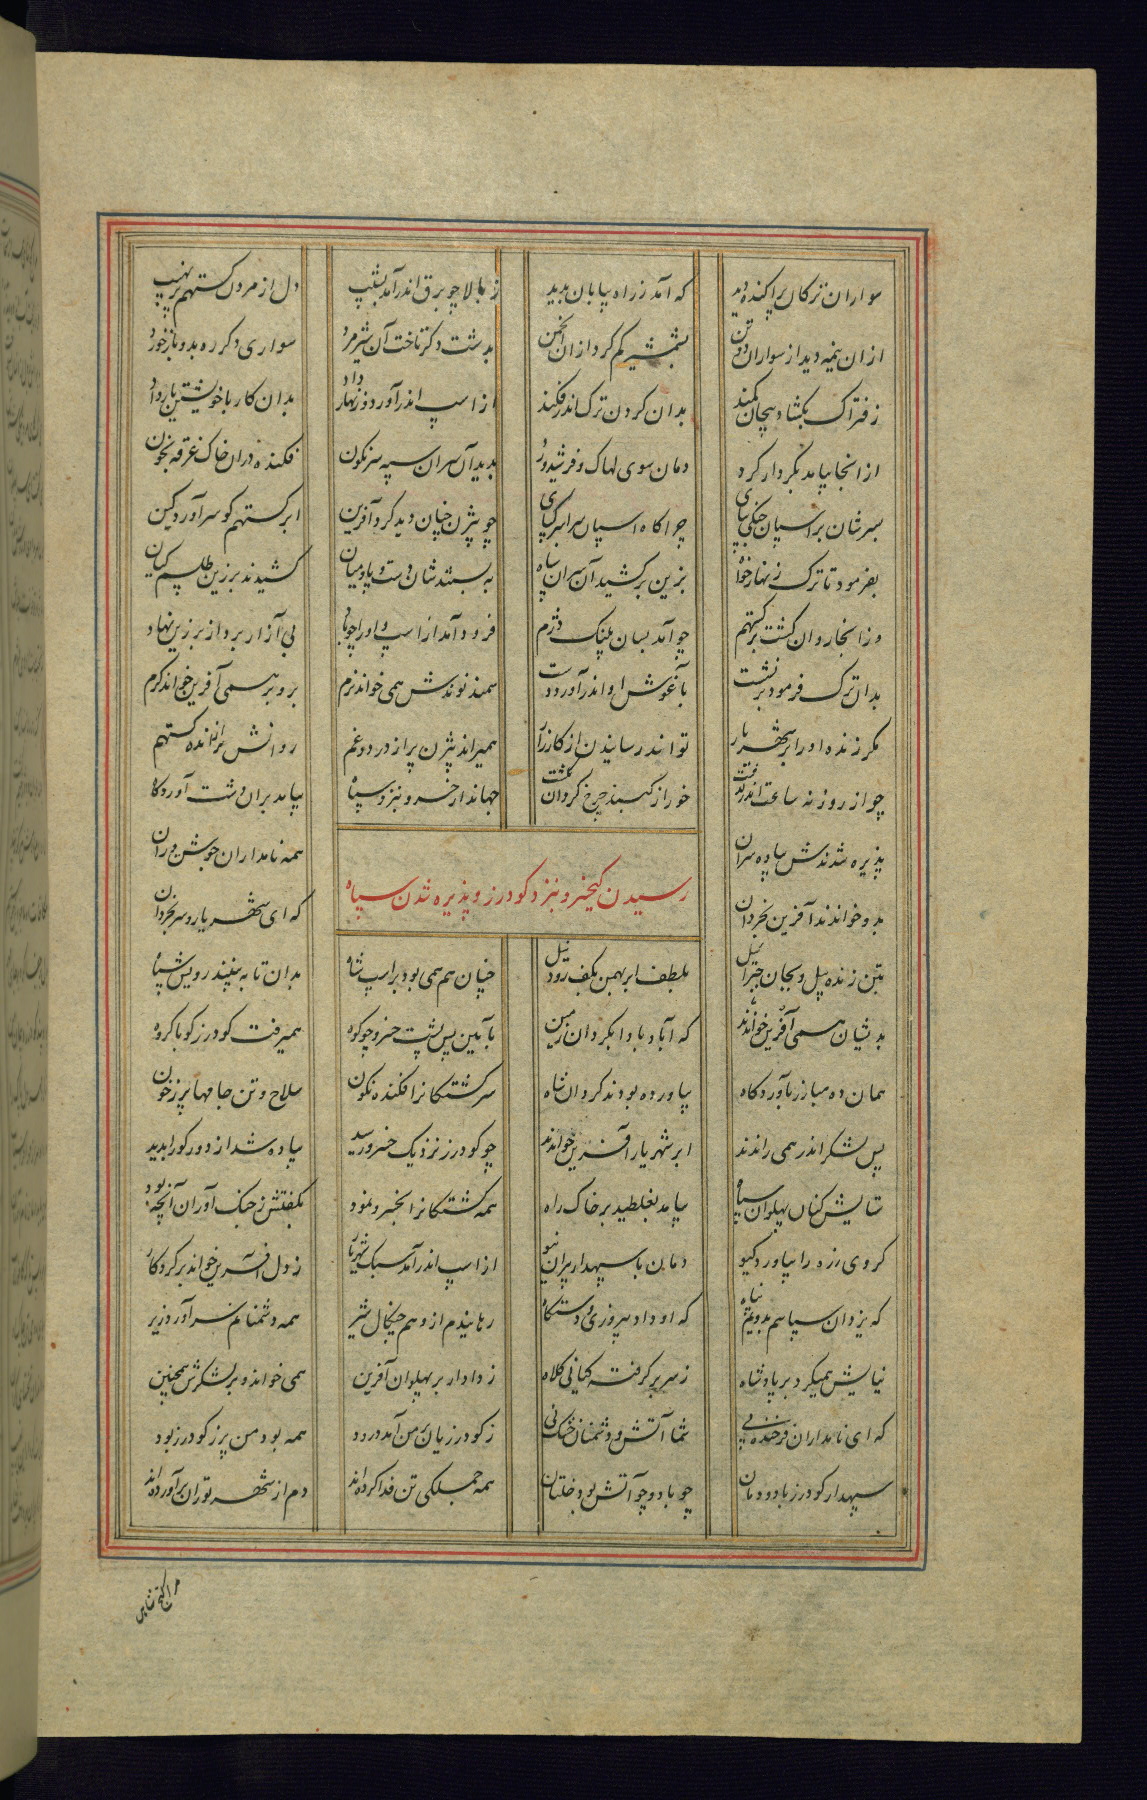 سواران ترکان پراکنده دید که آمد ز راه بیابان پدید ز بالا چو برق اندر آمد بشیب دل از مردن گستهم پر نهیب
از ان نیمه دید از سواران دو تن بشمشیر کم کرد ازان انجمن بدشت دگر تاخت آن شیرمرد سواری دگر ره بدو باز خورد
ز فتراک بگشاد پیچان کمند بدان گردن ترک اندر فکند از اسپ اندر آورد و زنهار داد بدان کار با خویشتن یار داد
از انجا بیامد بکردار گرد دمان سوی لهاک و فرشیدورد بدید آن سران سپه سرنگون فکنده دران خاک غرقه بخون
بسرشان بر اسپان جنگی بپای چراگاه اسپان سراسر گیای چو بیژن چنان دید کرد آفرین ابر گستهم کو سر آورد کین
بفرمود تا ترک زنهار خواه بزین بر کشید آن سران سپاه به بستندشان دست و پا و میان کشیدند بر زین طلسم کیان
وز انجا روان گشت بر گستهم چو آمد بسان پلنگ دژم فرود آمد از اسپ و او را چو باد بی آزار برد از بر زین نهاد
بدان ترک فرمود بر نشست بآغوش او اندر آورد دست سمند نوندش همی خواند نرم برو بر همی آفرین خواند گرم
مگر زنده او را بر شهریار تواند رسانیدن از کارزار همیراند بیژن پر از درد و غم روانش پر اندیشه گستهم
چو از روز نه ساعت اندر گذشت خور از گنبد چرخ گردان گشت جهاندار خسرو بنزد سپاه بیامد بران دشت آوردگاه
رسیدن کیخسرو بنزد گودرز و پذیره شدن سپاه
پذیره شدندش پیاده سران همه نامداران جوشن وران
برو خواندند آفرین بخردان که ای شهریار و سر بخردان
بتن زنده پیل و بجان جبرئیل بلطف ابر بهمن بکف رود نیل چنان هم همی بود بر اسپ شاه بدان تا به بینند رویش سپاه
بدیشان همی آفرین خواند که آباد بادا بگردان زمین بآیین پس پشت خسرو چو کوه همیرفت گودرز گو با گروه
همان ده مبارز بآوردگاه بیاورده بودند گردان شاه سر کشتگان را فکنده نگون سلاح و تن جامها پر ز خون
پس لشکر اندر همی راندند ابر شهریار آفرین خواندند چو گودرز نزدیک خسرو رسید پیاده شد از دور کو را بدید
ستایش کنان پهلوان سپاه بیامد بغلطید بر خاک راه همه کشتگان را بخسرو نمود بگفتش ز جنگ آوران آنچه بود
گروی زره را بیاورد گیو دمان با سپهدار پیران نیو از اسپ اندر آمد سبک شهریار ز دل آفرین خواند بر کردگار
که یزدان سپاسم بدویم پناه که او داد پیروزی و دستگاه رهانیدم از وهم چنگال شیر همه دشمنانم سر آورد زیر
نیایش همیکرد بر پادشاه ز سر بر گرفته کیانی کلاه ز دادار بر پهلوان آفرین همی خواند و بر لشکرش همچنین
که ای نامداران فرخنده پی شما آتش و دشمنان خشک نی ز گودرزیان بر من آمد درود همه بود من پر ز گودرز بود
سپهدار گودرز با دودمان چو باد و چو آتش بود جنگشان همه جملگی تن فدا کرده اند دم از شهر توران بر آورده اند